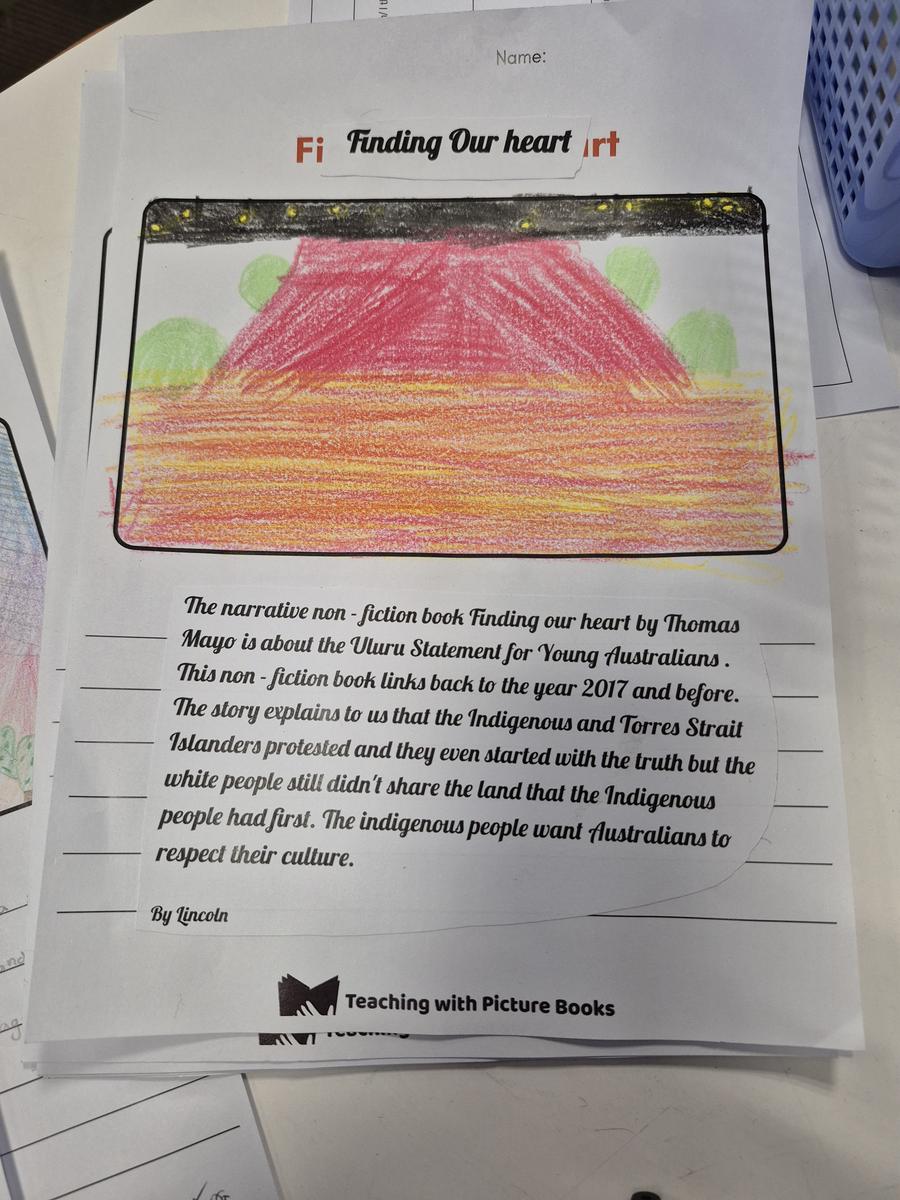 Name:
Fi Finding Our heart art
The narrative non - fiction book Finding our heart by Thomas
Mayo is about the Uluru Statement for Young Australians .
This non - fiction book links back to the year 2017 and before.
The story explains to us that the Indigenous and Torres Strait
Islanders protested and they even started with the truth but the
white people still didn't share the land that the Indigenous
people had first. The indigenous people want Australians to
respect their culture.
By Lincoln
Teaching with Picture Books